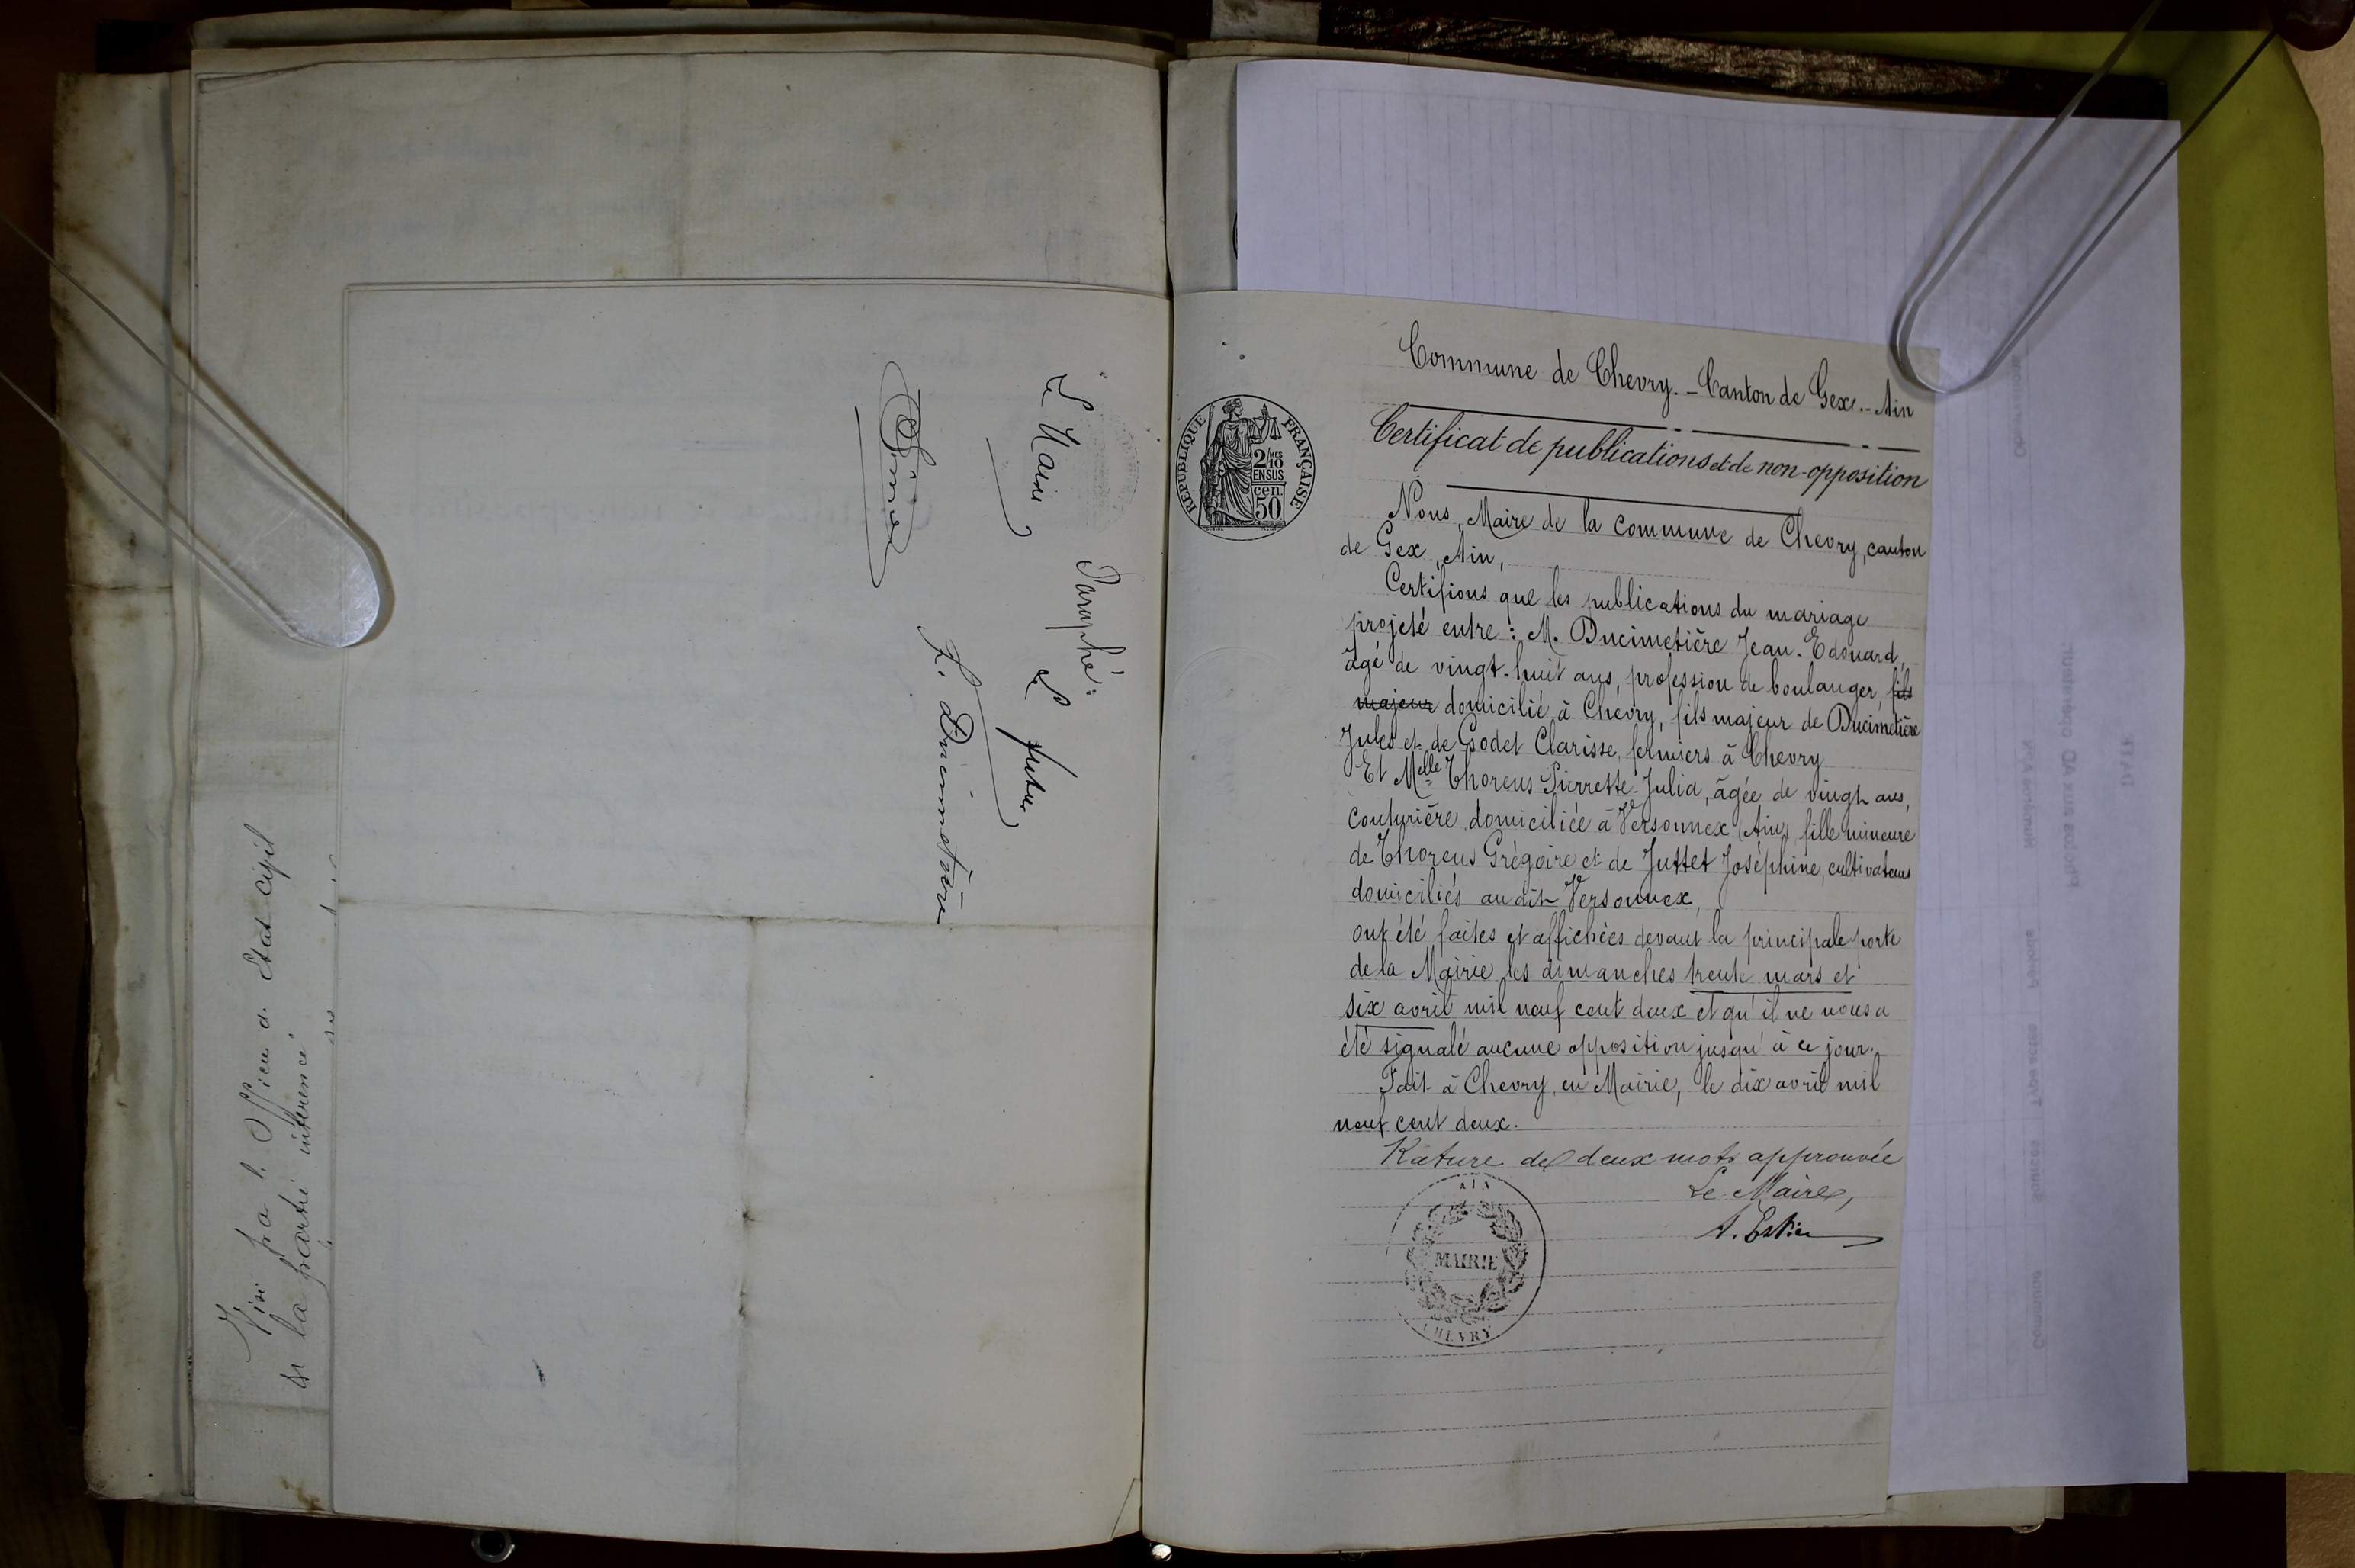 Visé pa l'Officier d. Etat cipil
et la partie intérencé
Paraphé:
Le Maire
Le futur
E. Ducimetière
RÉPUBLIQUE FRANÇAISE
2/10 MES
EN SUS
cen.
50
Commune de Chevry. - Canton de Gex. - Ain
Certificat de publications et de non-opposition
Nous, Maire de la commune de Chevry, canton
de Gex, Ain,
Certifions que les publications du mariage
projeté entre : M. Ducimetière Jean-Edouard,
âgé de vingt-huit ans, profession de boulanger, fils
majeur domicilié à Chevry, fils majeur de Ducimetière
Jules et de Godet Clarisse, fermiers à Chevry
Et Melle Thoreus Pierrette-Julia, âgée de vingt ans,
couturière domiciliée à Versonnex (Ain) fille mineure
de Thoreus Grégoire et de Juttet Joséphine, cultivateurs
domiciliés audit Versonnex,
ont été faites et affichées devant la principale porte
de la Mairie les dimanches trente mars et
six avril mil neuf cent deux et qu'il ne nous a
été signalé aucune opposition jusqu'à ce jour.
Fait à Chevry, en Mairie, le dix avril mil
neuf cent deux.
Rature de deux mots approuvée
Le Maire,
AIN
MAIRIE
CHEVRY